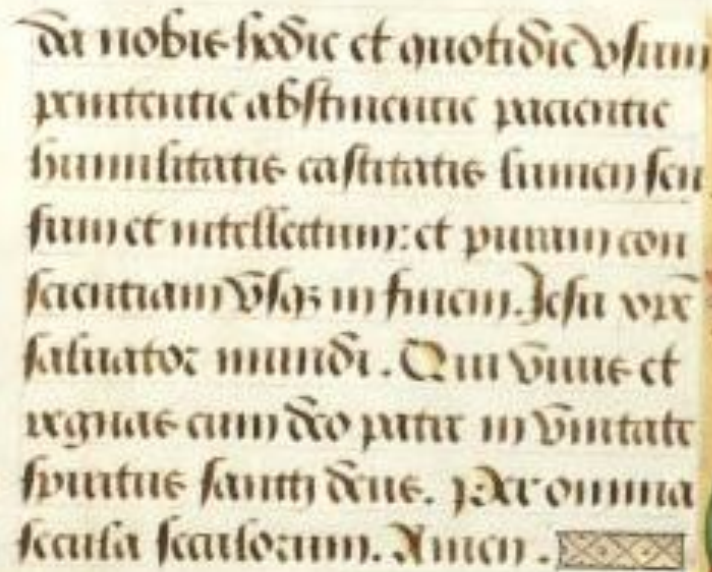 da nobis hodie et quotidie vsum
penitentie abstinentie pacientie
humilitatis castitatis lumen sen
sum et intellectum: et puram con
scientiam vsqꝫ in finem. Jesu xpe
saluator mundi. Qui viuis et
regnas cum deo patre in vnitate
spiritus sancti deus. Per omnia
secula seculorum. Amen.